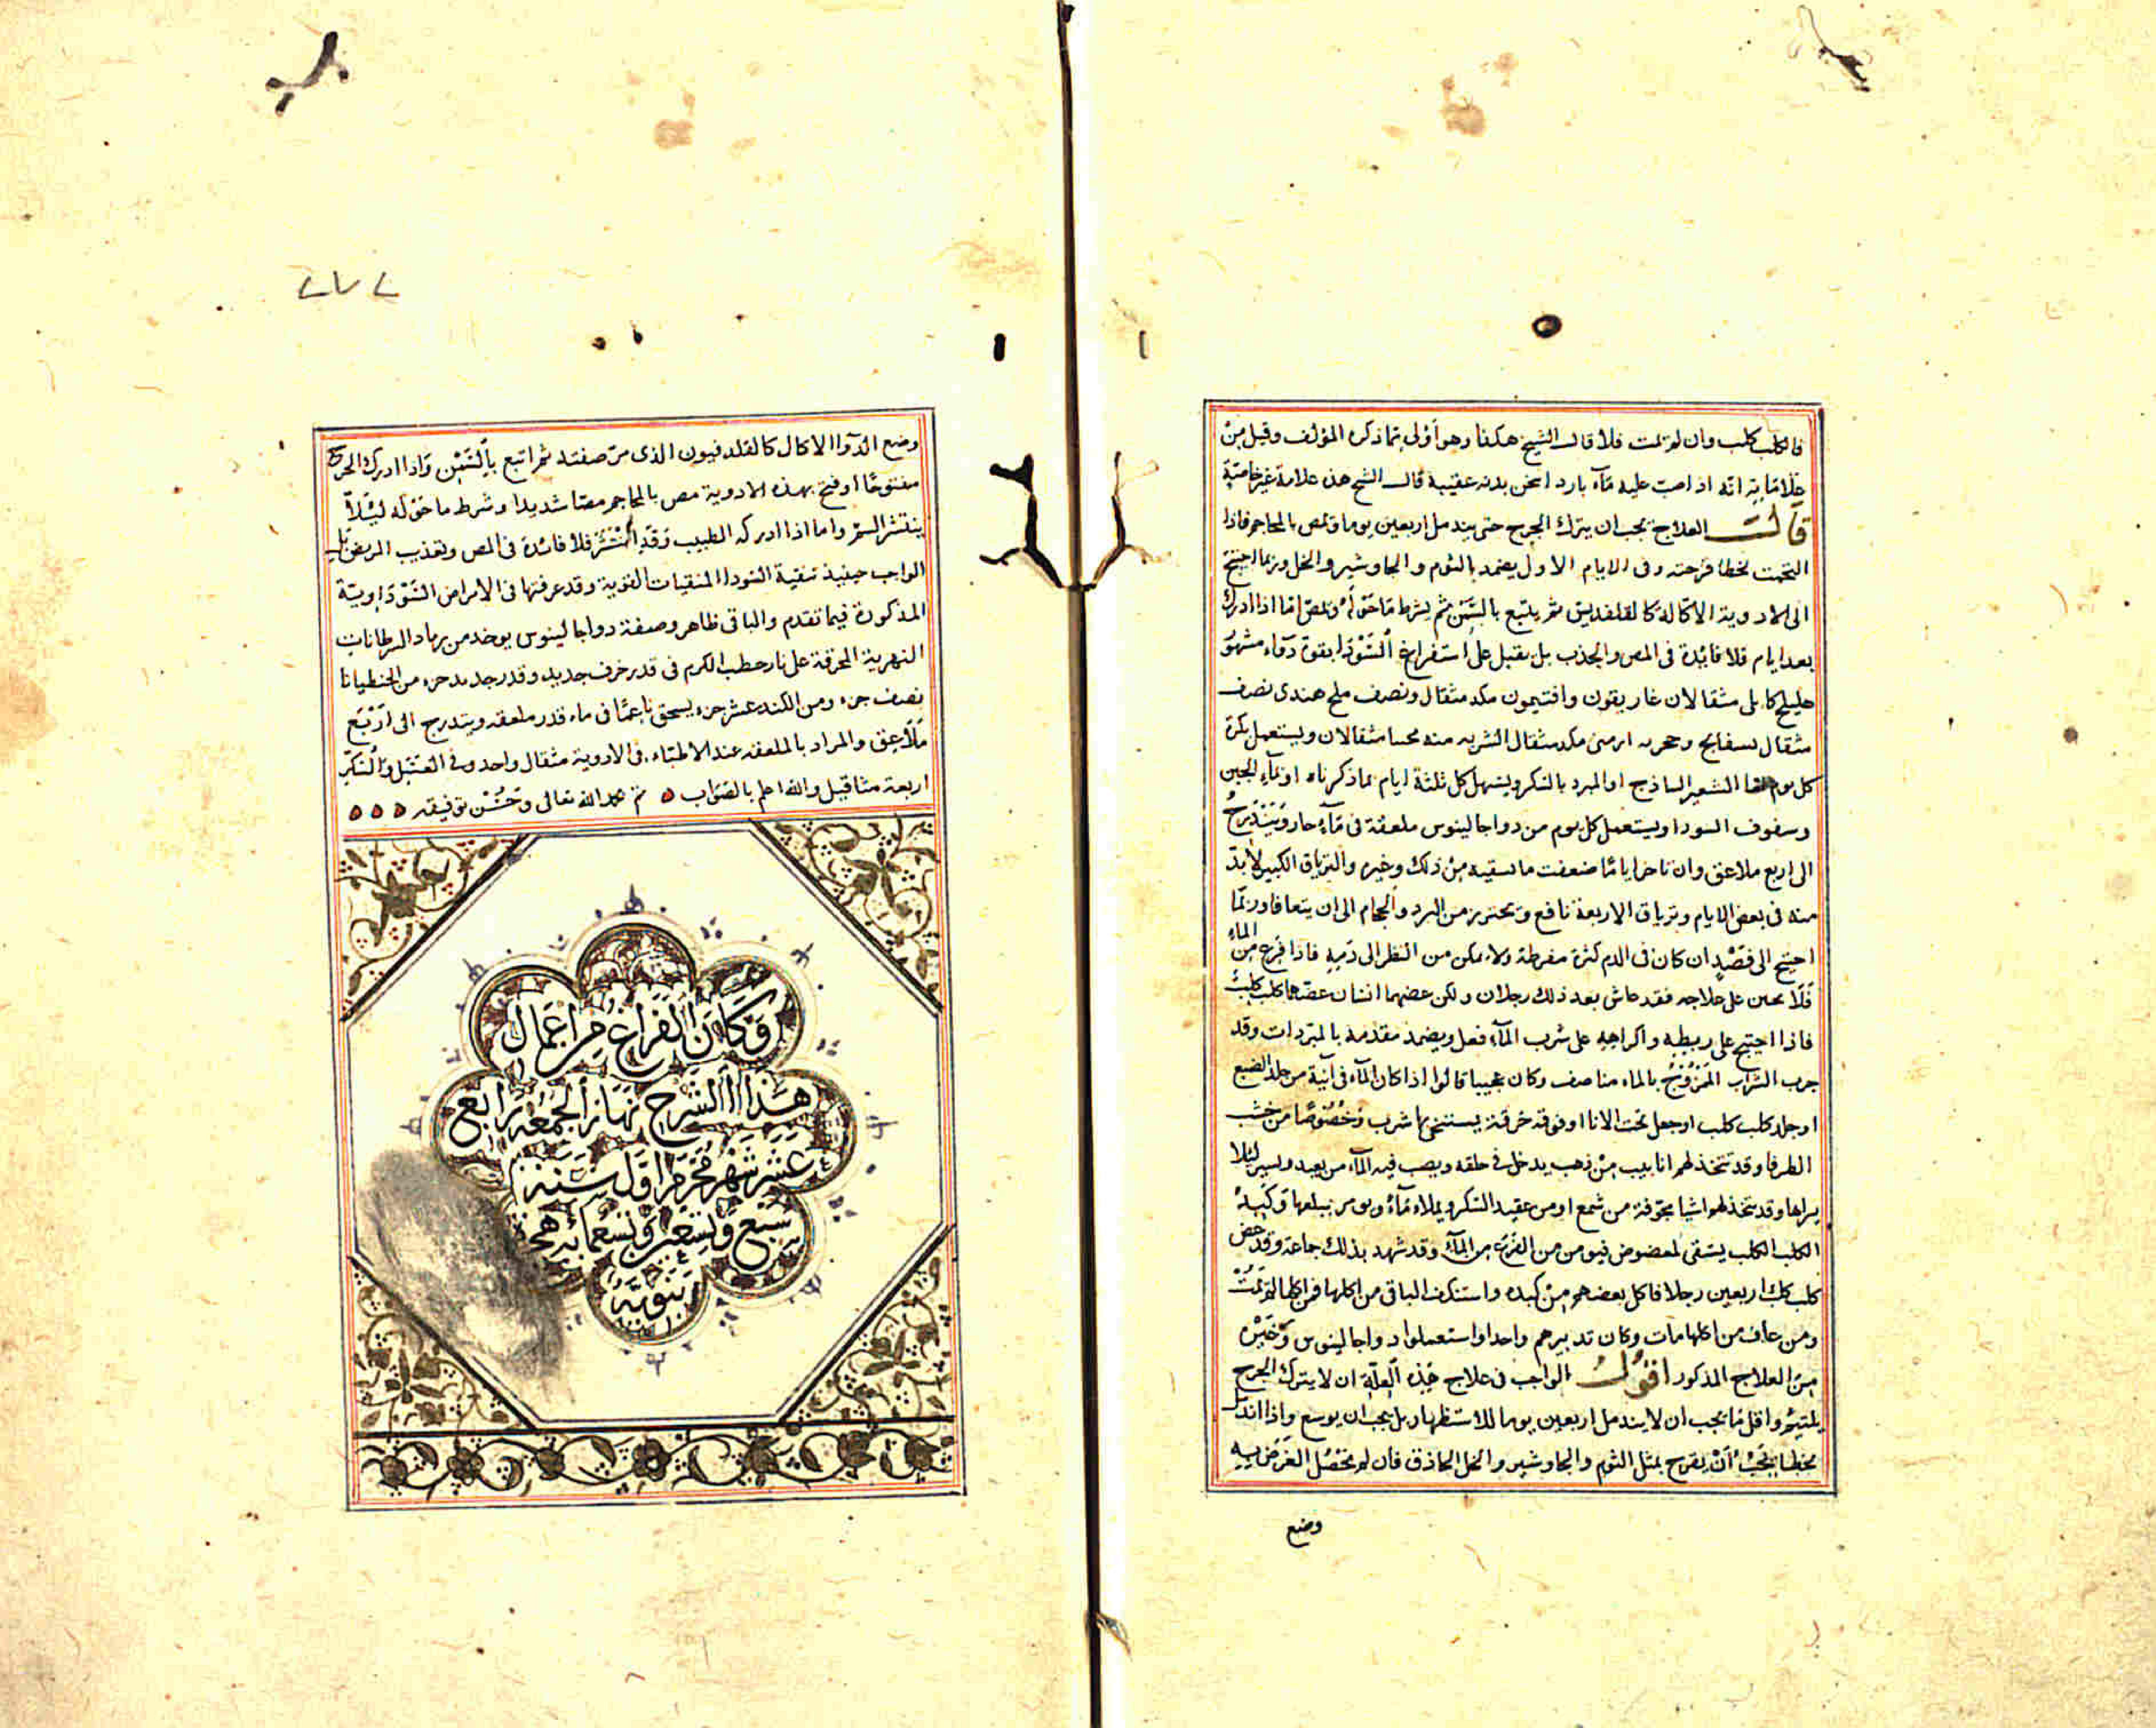 فالكلب كلب وان لم تمت فلا قال الشيخ هكذا وهو أولى مما ذكره المؤلف وقيل من
علاماته انه اذا صب عليه مآء بارد اسخن بدنه عقيبه قال الشيخ هذه علامة غير خاصّيّة
قالت العلاج يجب ان يترك الجرح حتى يندمل اربعين يوما وتمص بالمحاجم فاذا
التحمت بخطا قرحته وفى الايام الاول يضمد بالثوم والجاوشير والخل وربما احتيج
الى الادوية الاكالة كالقلفديين ثم يتبع بالسّمن ثم يشرط ما حوله وتمص امّا اذا ادرك
بعد ايام فلا فائدة فى المص والجذب بل يقبل على استفراغ السّودا بقوة دوآء مشهو
هليلج كابلى مثقالان غاريقون وافتيمون مكد مثقال ونصف ملح هندى نصف
مثقال بسفايج وحجر ارمنى مكد مثقال الشربه منه مثقالان ويستعمل بكرة
كل يوم الشعير الساذج او المبرد بالسكر ويسهل كل ثلثة ايام بما ذكرناه او بمآء الجبن
وسفوف السودا ويستعمل كل يوم من دوا جالينوس ملعقة فى مآء حار ويتدرج
الى اربع ملاعق وان تاخر اياما ضعفت ما يسقيه من ذلك وغيره والترياق الكبير لابدّ
منه فى بعض الايام وترياق الاربعة نافع ويحترز من البرد والحمام الى ان يتعافا وربما
احتيج الى فصد ان كان فى الدم كثرة مفرطة ولا يمكن من النظر الى دمه فاذا فزع من الماء
فلا يحين على علاجه فقد عاش بعد ذلك رجلان ولكن عضهما انسان عضه كلب كلب
فاذا احتيج على ربطه واكراهه على شرب المآء فعل ويضمد مقدمه بالمبردات وقد
جرب الشراب الممزوج بالماء مناصف وكان عجيبا قالوا اذا كان المآء فى آنية من جلد الضبع
او جلد كلب كلب او جعل تحت الانا او فوقه خرقة يستنجى بها شرب وخصوصا من خشب
الطرفا وقد تتخذ لهم انابيب من ذهب يدخل فى حلقه ويصب فيه المآء من بعيد ويستر لئلا
يراها وقد تتخذ لهم اشيا مجوفة من شمع او من عقيد السكر ويملاء مآء ويومر ببلعها وكبد
الكلب الكلب يسقى لمعضوض فيومن من الفزع من المآء وقد شهد بذلك جماعة وقد عض
كلب كلب اربعين رجلا فاكل بعضهم من كبده واستنكف الباقى من اكلها فمن اكلها لم يمت
ومن عاف من اكلها مات وكان تدبيرهم واحدا واستعملوا دوا جالينوس وغيره
من العلاج المذكور اقول الواجب فى علاج هذه العلة ان لا يترك الجرح
يلتحم واقل ما يجب ان لا يندمل اربعين يوما للاستظهار بل يجب ان يوسع واذا اندمل
بخطا يجب أن يقرح بمثل الثوم والجاوشير والخل الحاذق فان لم يحصل الغرض به
وضع
٢٧٢
وضع الدوآ الاكال كالقلدفيون الذى مر صفته ثم اتبع بالسّمن واذا ادرك الجرح
مفتوحا او فتح بهذه الادوية مص بالمحاجم مصا شديدا وشرط ما حوله لئلا
ينتشر السم واما اذا ادركه الطبيب وقد انتشر فلا فائدة فى المص وتعذيب المريض بل
الواجب حينيذ تنقية السودا المنقيات القوية وقد عرفتها فى الامراض السوداوية
المذكورة فيما تقدم والباقى ظاهر وصفة دوا جالينوس يوخذ من رماد السرطانات
النهرية المحرقة على نار حطب الكرم فى قدر خزف جديد وقدر جديد جزء من الجنطيانا
نصف جزء ومن الكندر عشر جزء يسحق ناعما فى ماء قدر ملعقه ويتدرج الى اربع
ملاعق والمراد بالملعقه عند الاطباء فى الادوية مثقال واحد وفى العسل والسّكر
اربعة مثاقيل والله اعلم بالصواب ٥ تم بحمد الله تعالى وحسن توفيقه ٥ ٥ ٥
وكان الفراغ من اعمال
هذا الشرح نهار الجمعه رابع
عشر شهر محرم اول سنة
سبع وتسعين وتسعمائه هجر
نبويه